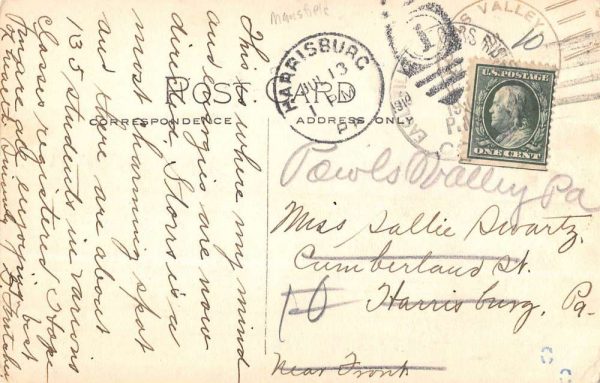 Mansfield
This is where my mind
and energies are now
directed. Storrs is a
most charming spot
and there are about
135 students in various
classes registered. Hope
you are all enjoying best
of health. Sincerely
POST CARD
CORRESPONDENCE
ADDRESS ONLY
HARRISBURG
JUL 13
1 PM
PA
1
S VALLEY
10
EAGLEVILLE
1910
U.S. POSTAGE
ONE CENT
Powls Valley Pa
Miss Sallie Swartz.
Cumberland St.
Harrisburg, Pa.
Near Front.